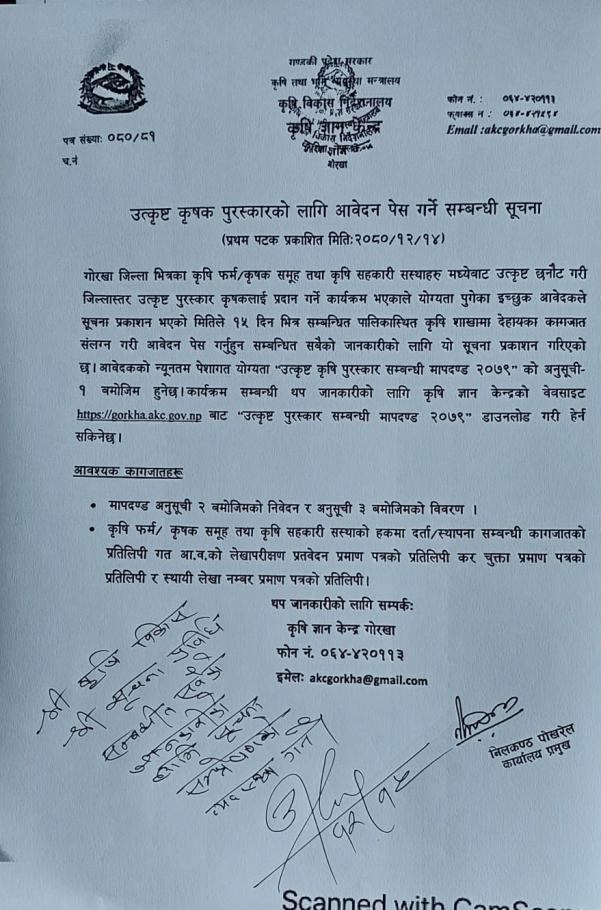 गण्डकी प्रदेश सरकार
कृषि तथा भूमि व्यवस्था मन्त्रालय
कृषि विकास निर्देशनालय
कृषि ज्ञान केन्द्र
गोरखा
फोन नं. : ०६४-४२०११३
Email :akcgorkha@gmail.com
पत्र संख्याः ०८०/८१
च.नं
उत्कृष्ट कृषक पुरस्कारको लागि आवेदन पेस गर्ने सम्बन्धी सूचना
(प्रथम पटक प्रकाशित मितिः२०८०/१२/१४)
गोरखा जिल्ला भित्रका कृषि फर्म/कृषक समूह तथा कृषि सहकारी सस्थाहरु मध्येबाट उत्कृष्ट छनौट गरी
जिल्लास्तर उत्कृष्ट पुरस्कार कृषकलाई प्रदान गर्ने कार्यक्रम भएकाले योग्यता पुगेका इच्छुक आवेदकले
सूचना प्रकाशन भएको मितिले १५ दिन भित्र सम्बन्धित पालिकास्थित कृषि शाखामा देहायका कागजात
संलग्न गरी आवेदन पेस गर्नुहुन सम्बन्धित सबैको जानकारीको लागि यो सूचना प्रकाशन गरिएको
छ। आवेदकको न्यूनतम पेशागत योग्यता "उत्कृष्ट कृषि पुरस्कार सम्बन्धी मापदण्ड २०७९" को अनुसूची-
१ बमोजिम हुनेछ। कार्यक्रम सम्बन्धी थप जानकारीको लागि कृषि ज्ञान केन्द्रको वेवसाइट
https://gorkha.akc.gov.np बाट "उत्कृष्ट पुरस्कार सम्बन्धी मापदण्ड २०७९" डाउनलोड गरी हेर्न
सकिनेछ।
आवश्यक कागजातहरू
• मापदण्ड अनुसूची २ बमोजिमको निवेदन र अनुसूची ३ बमोजिमको विवरण ।
• कृषि फर्म/ कृषक समूह तथा कृषि सहकारी सस्थाको हकमा दर्ता/स्थापना सम्बन्धी कागजातको
प्रतिलिपी गत आ.व.को लेखापरीक्षण प्रतवेदन प्रमाण पत्रको प्रतिलिपी कर चुक्ता प्रमाण पत्रको
प्रतिलिपी र स्थायी लेखा नम्बर प्रमाण पत्रको प्रतिलिपी।
थप जानकारीको लागि सम्पर्क:
कृषि ज्ञान केन्द्र गोरखा
फोन नं. ०६४-४२०११३
इमेलः akcgorkha@gmail.com
श्री कृषि विकास
श्री सूचना प्रविधि
निलकण्ठ पोखरेल
कार्यालय प्रमुख
Scanned with